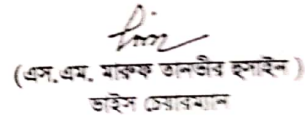 (এস.এম. মারুফ তানভীর হুসাইন)
ভাইস চেয়ারম্যান